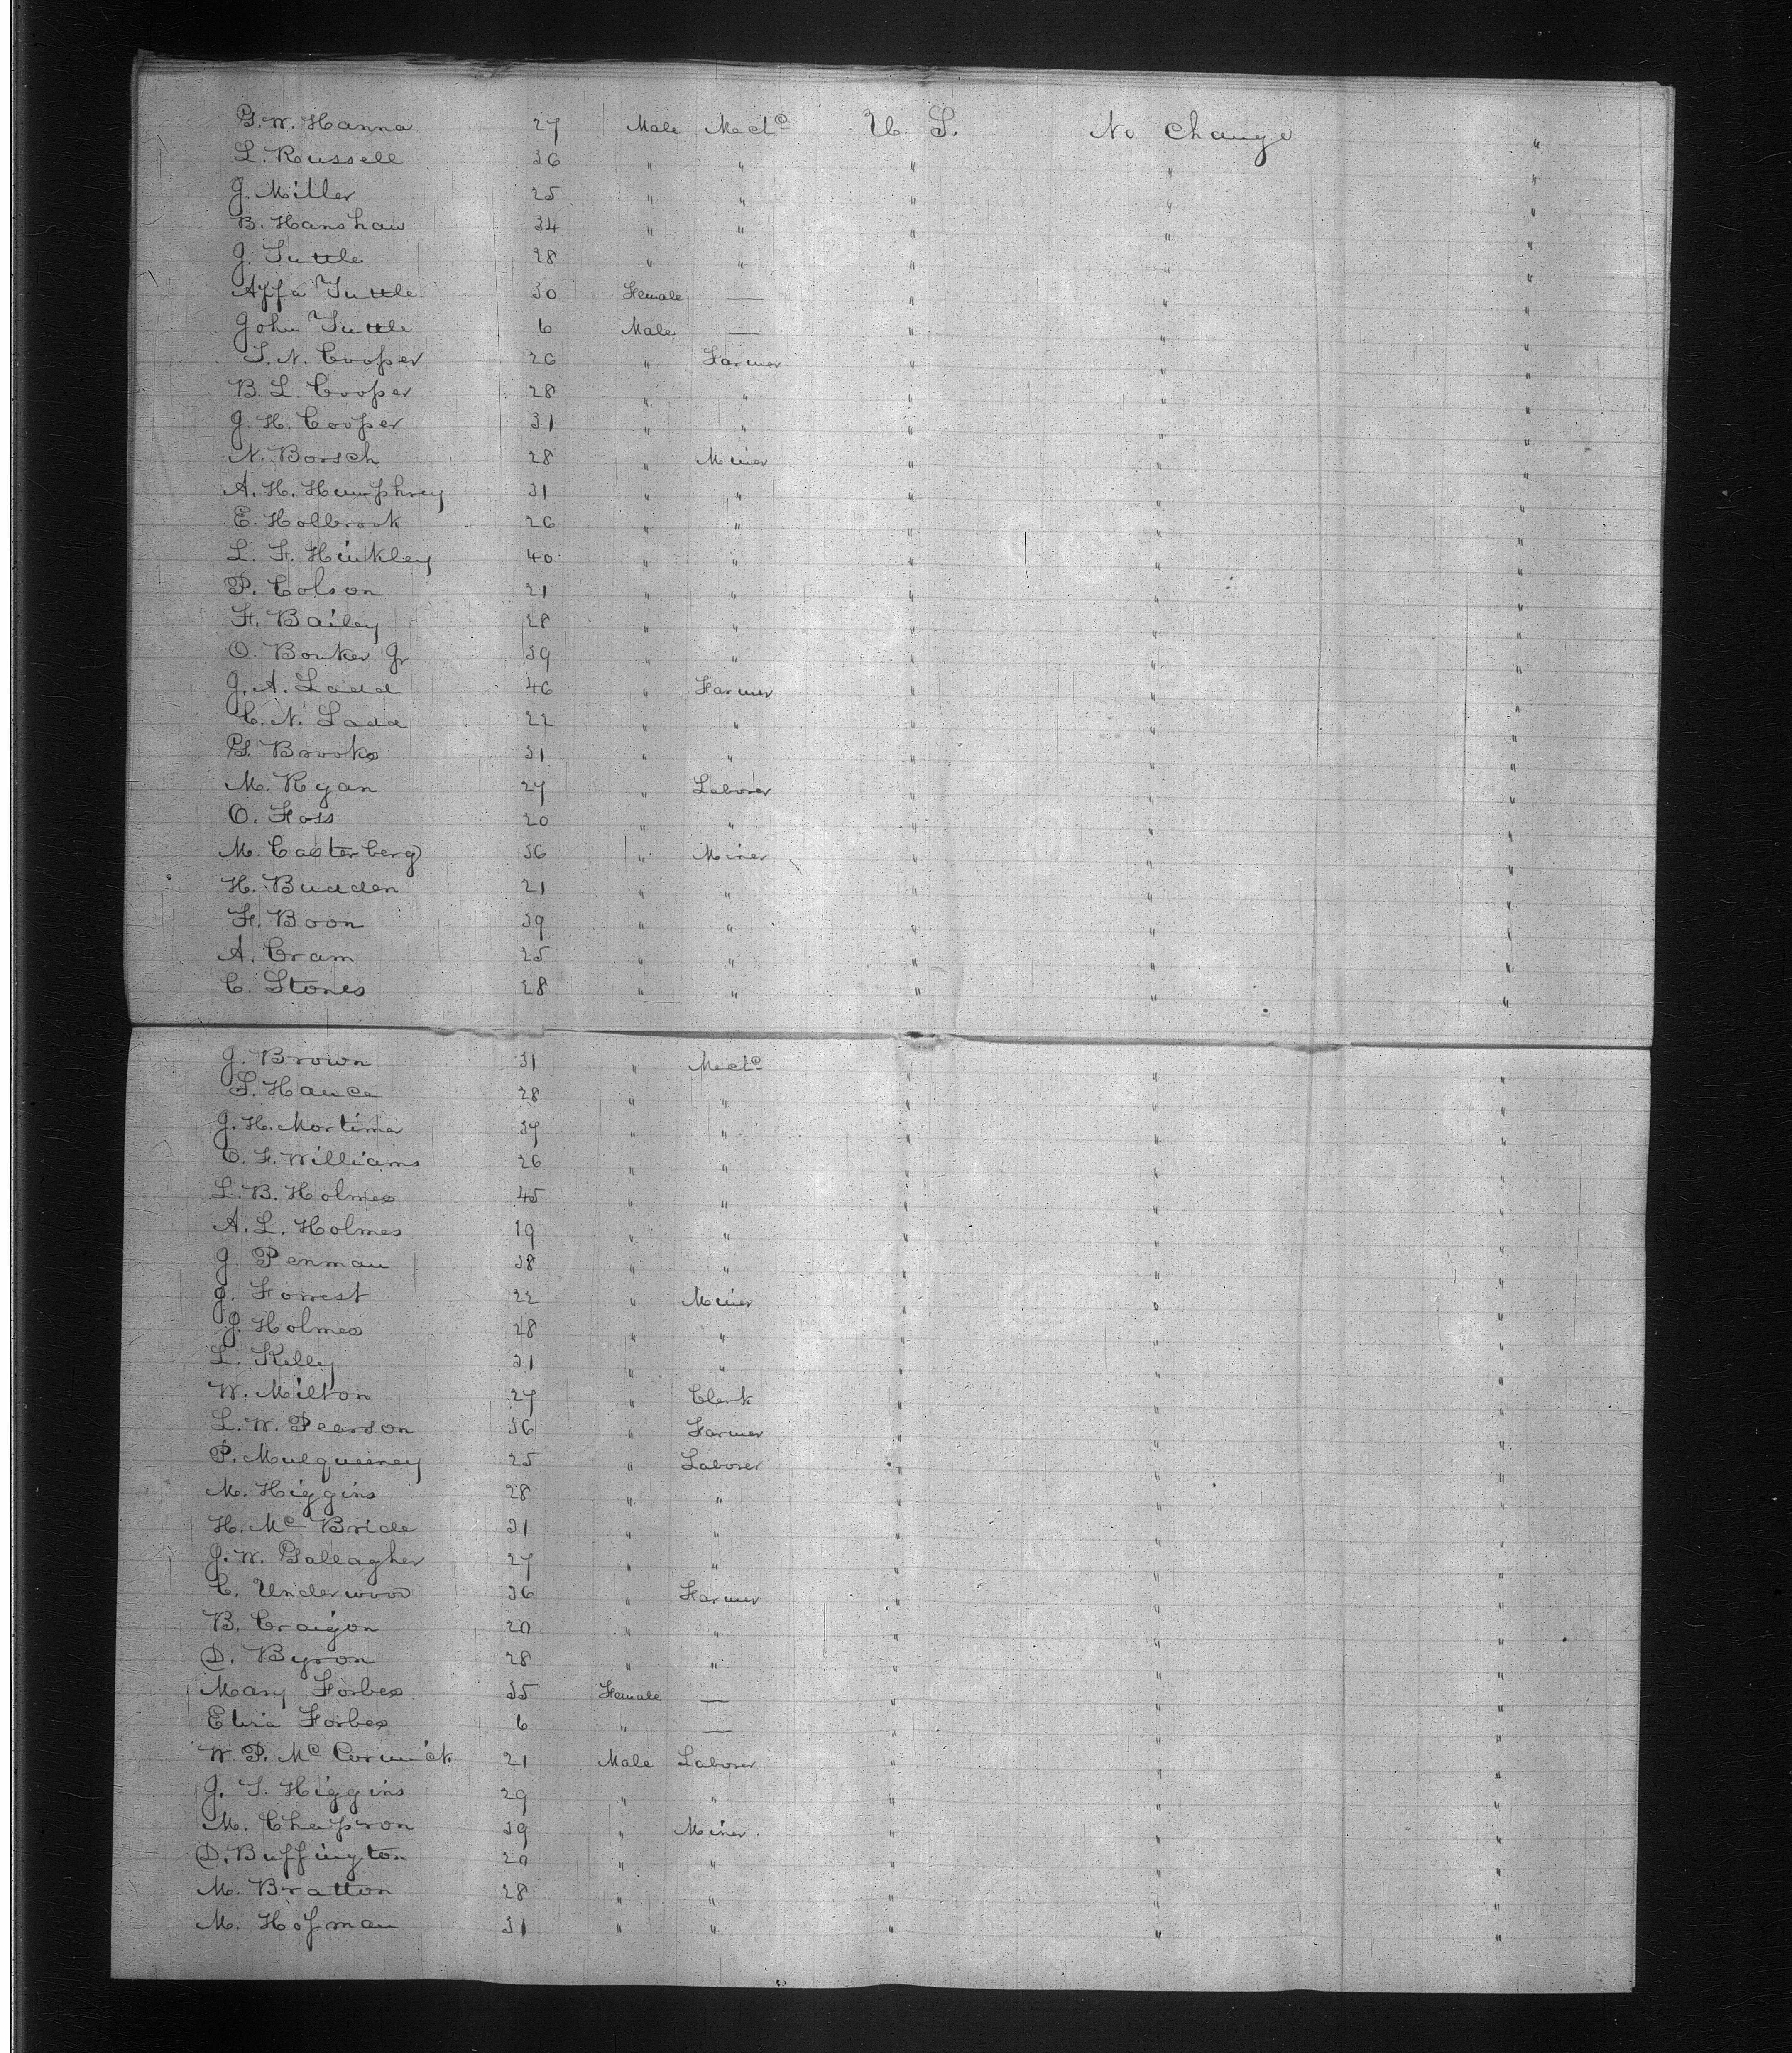 G. W. Hanna 27 Male Mech U. S. No Change "
L. Russell 36 " " " " "
J. Miller 25 " " " " "
B. Hanshaw 34 " " " " "
J. Tuttle 28 " " " " "
Tuttle 30 Female — " " "
John Tuttle 6 Male — " " "
T. N. Cooper 26 " Farmer " " "
B. L. Cooper 28 " " " " "
J. H. Cooper 31 " " " " "
N. Borsch 28 " Miner " " "
A. H. Humphrey 31 " " " " "
E. Holbrook 26 " " " " "
L. F. Hinkley 40 " " " " "
P. Colson 21 " " " " "
F. Bailey 28 " " " " "
O. Bonker Jr 39 " " " " "
J. A. Ladd 46 " Farmer " " "
C. N. Ladd 22 " " " " "
G. Brooks 31 " " " " "
M. Ryan 27 " Laborer " " "
O. Foss 20 " " " " "
M. Casterberg 36 " Miner " " "
H. Budden 21 " " " " "
F. Boon 39 " " " " "
A. Cram 25 " " " " "
C. Stones 28 " " " " "
J. Brown 31 " Mech " " "
S. Hance 28 " " " " "
J. H. Mortimer 37 " " " " "
C. F. Williams 26 " " " " "
L. B. Holmes 45 " " " " "
A. L. Holmes 19 " " " " "
J. Penman 38 " " " " "
J. Forrest 22 " Miner " " "
J. Holmes 28 " " " " "
L. Kelley 31 " " " " "
W. Milton 27 " Clerk " " "
L. W. Pearson 36 " Farmer " " "
P. Mulqueeney 25 " Laborer " " "
M. Higgins 28 " " " " "
H. Mc Bride 31 " " " " "
J. W. Gallagher 27 " " " " "
C. Underwood 36 " Farmer " " "
B. Craigon 20 " " " " "
D. Byron 28 " " " " "
Mary Forbes 35 Female — " " "
Forbes 6 " — " " "
W. P. Mc Cormick 21 Male Laborer " " "
J. T. Higgins 29 " " " " "
M. Chapron 39 " Miner. " " "
D. Buffington 20 " " " " "
M. Bratton 28 " " " " "
M. Hofman 31 " " " " "